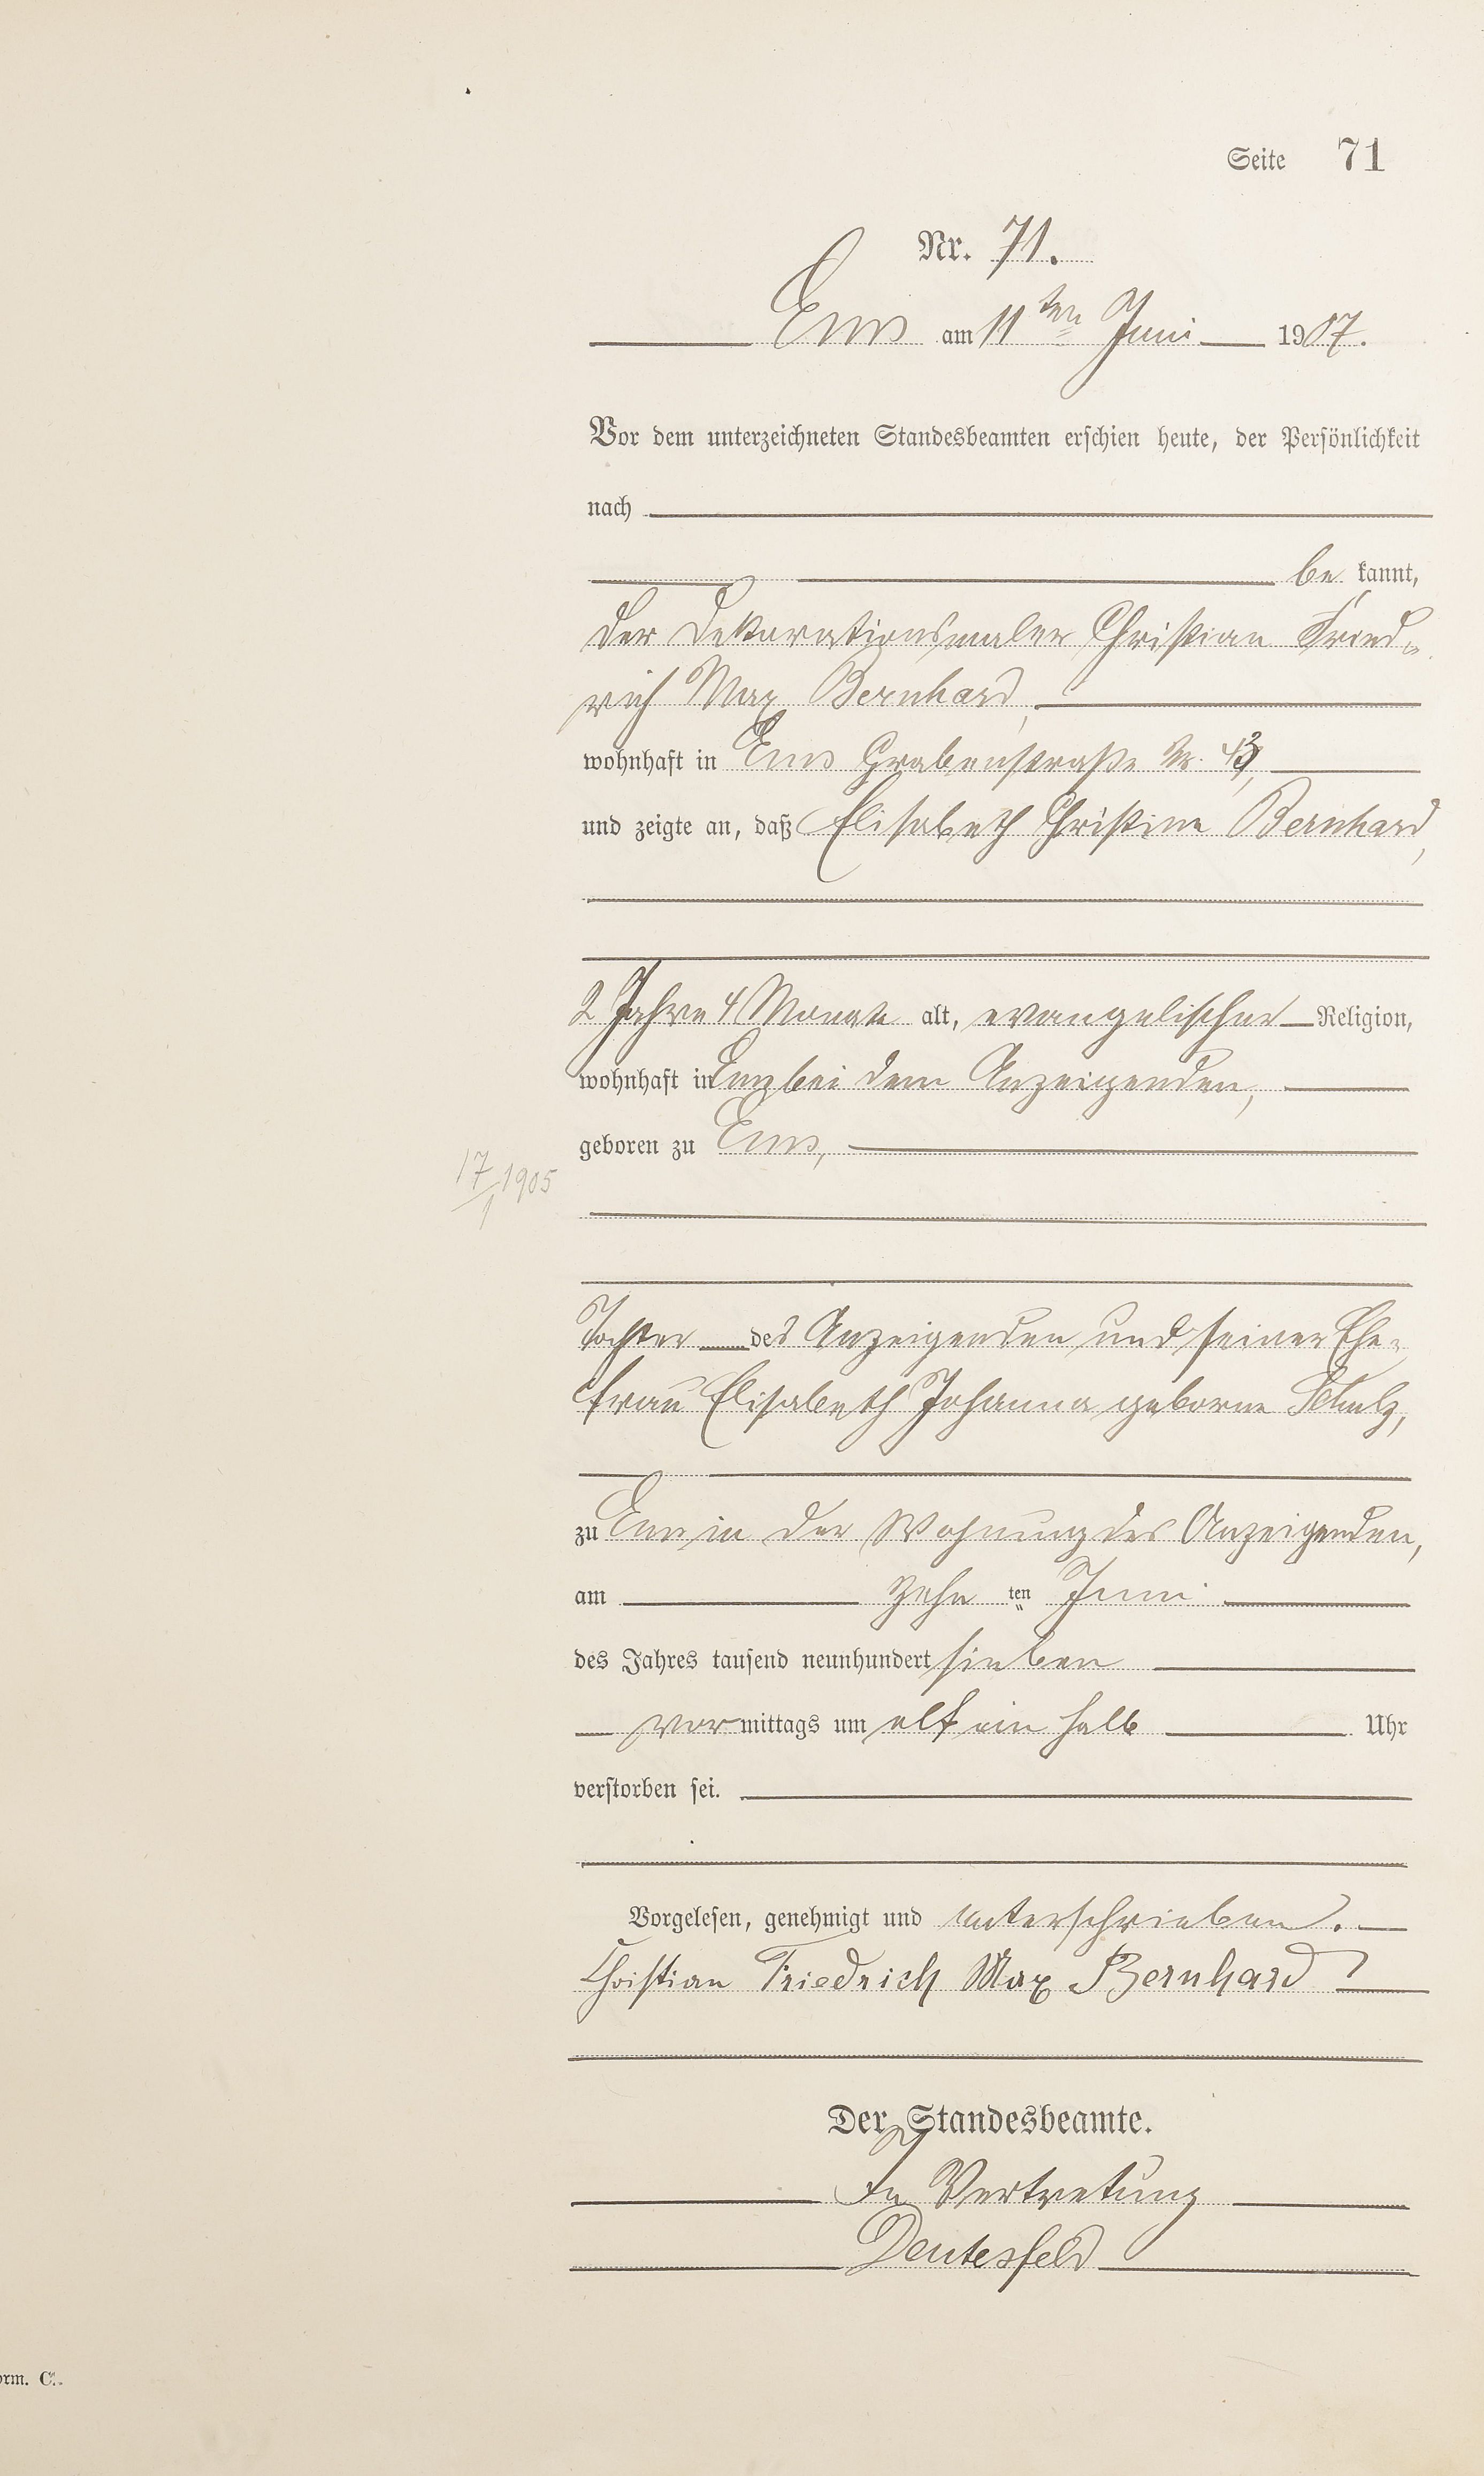 Seite 71
Nr. 71.
Ems am 11ten Juni 1907.
Vor dem unterzeichneten Standesbeamten erschien heute, der Persönlichkeit
nach
be kannt,
der Dekorationsmaler Christian Fried=
rich Max Bernhard,
wohnhaft in Ems Grabenstraße Nr.
und zeigte an, daß Elisabeth Christine Bernhard,
2 Jahre 4 Monate alt, evangelischer Religion,
wohnhaft in Ems bei dem Anzeigenden,
geboren zu Ems,
17/1 1905
Tochter des Anzeigenden und seiner Ehe=
frau Elisabeth Johanna geborne Schulz,
zu Ems in der Wohnung des Anzeigenden,
am zehn ten Juni
des Jahres tausend neunhundert sieben
vor mittags um elf ein halb Uhr
verstorben sei.
Vorgelesen, genehmigt und unterschrieben.
Christian Friedrich Max Bernhard
Der Standesbeamte.
In Vertretung
Deutesfeld
orm. C.